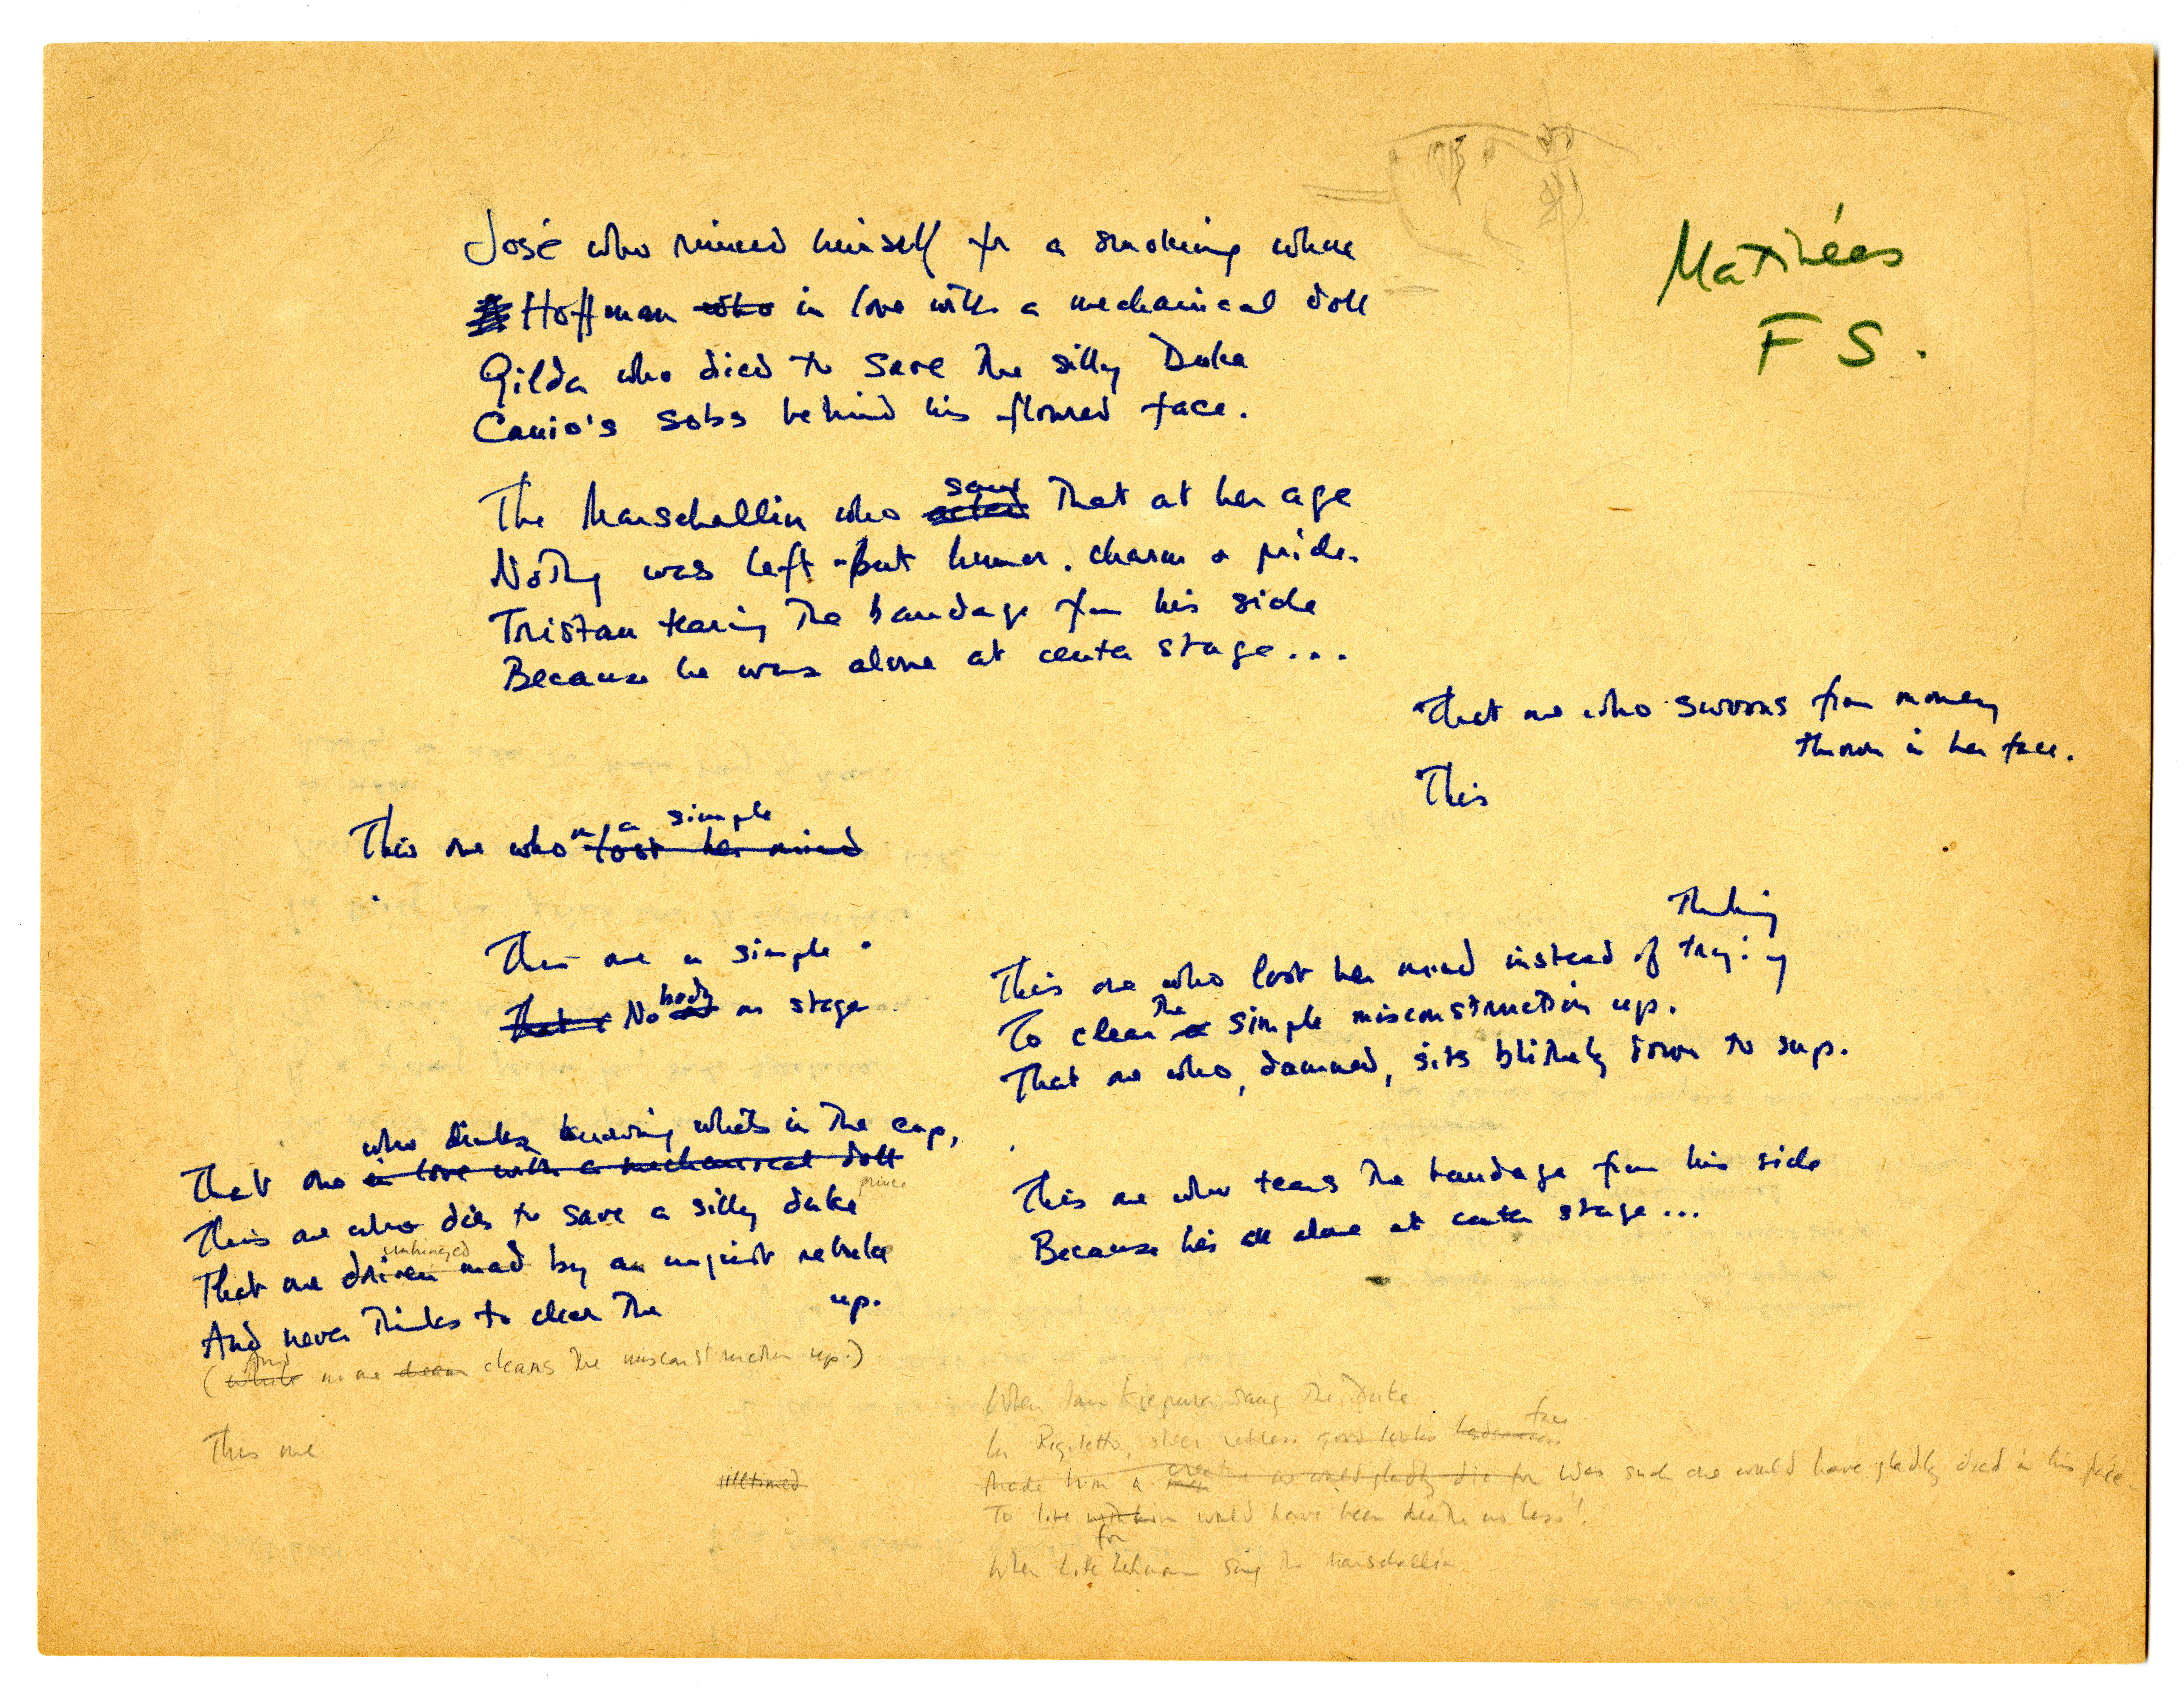 Matinées
F S.
José who ruined himself for a smoking whore
Hoffman who in love with a mechanical doll
Gilda who died to save the silly Duke
Canio's sobs behind his floured face.
The Marschallin who acted saw that at her age
Nothing was left but humor, charm & pride.
Tristan tearing the bandage from his side
Because he was alone at center stage...
That one who swoons from money
thrown in her face.
This
a simple
This one who lost her mind
This one a simple
That No body on stage
Thinking
This one who lost her mind instead of trying
To clear a the simple misconstruction up.
That one who, damned, sits blithely down to sup.
This one who tears the bandage from his side
Because he's all alone at center stage...
who drinks knowing what's in the cup,
That one in love with a mechanical doll
prince
This one who dies to save a silly duke
unhinged
That one driven mad by an unjust rebuke
And never thinks to clear the up.
(While And no one clears the misconstruction up.)
This one
illtimed
When Jan Kiepura sang the Duke
In Rigoletto, sheer reckless good looks handsomeness face
Made him a one would gladly die for Was such one would have gladly died in his place.
To live with him would have been death no less!
for
When Lotte Lehmann sang the Marschallin